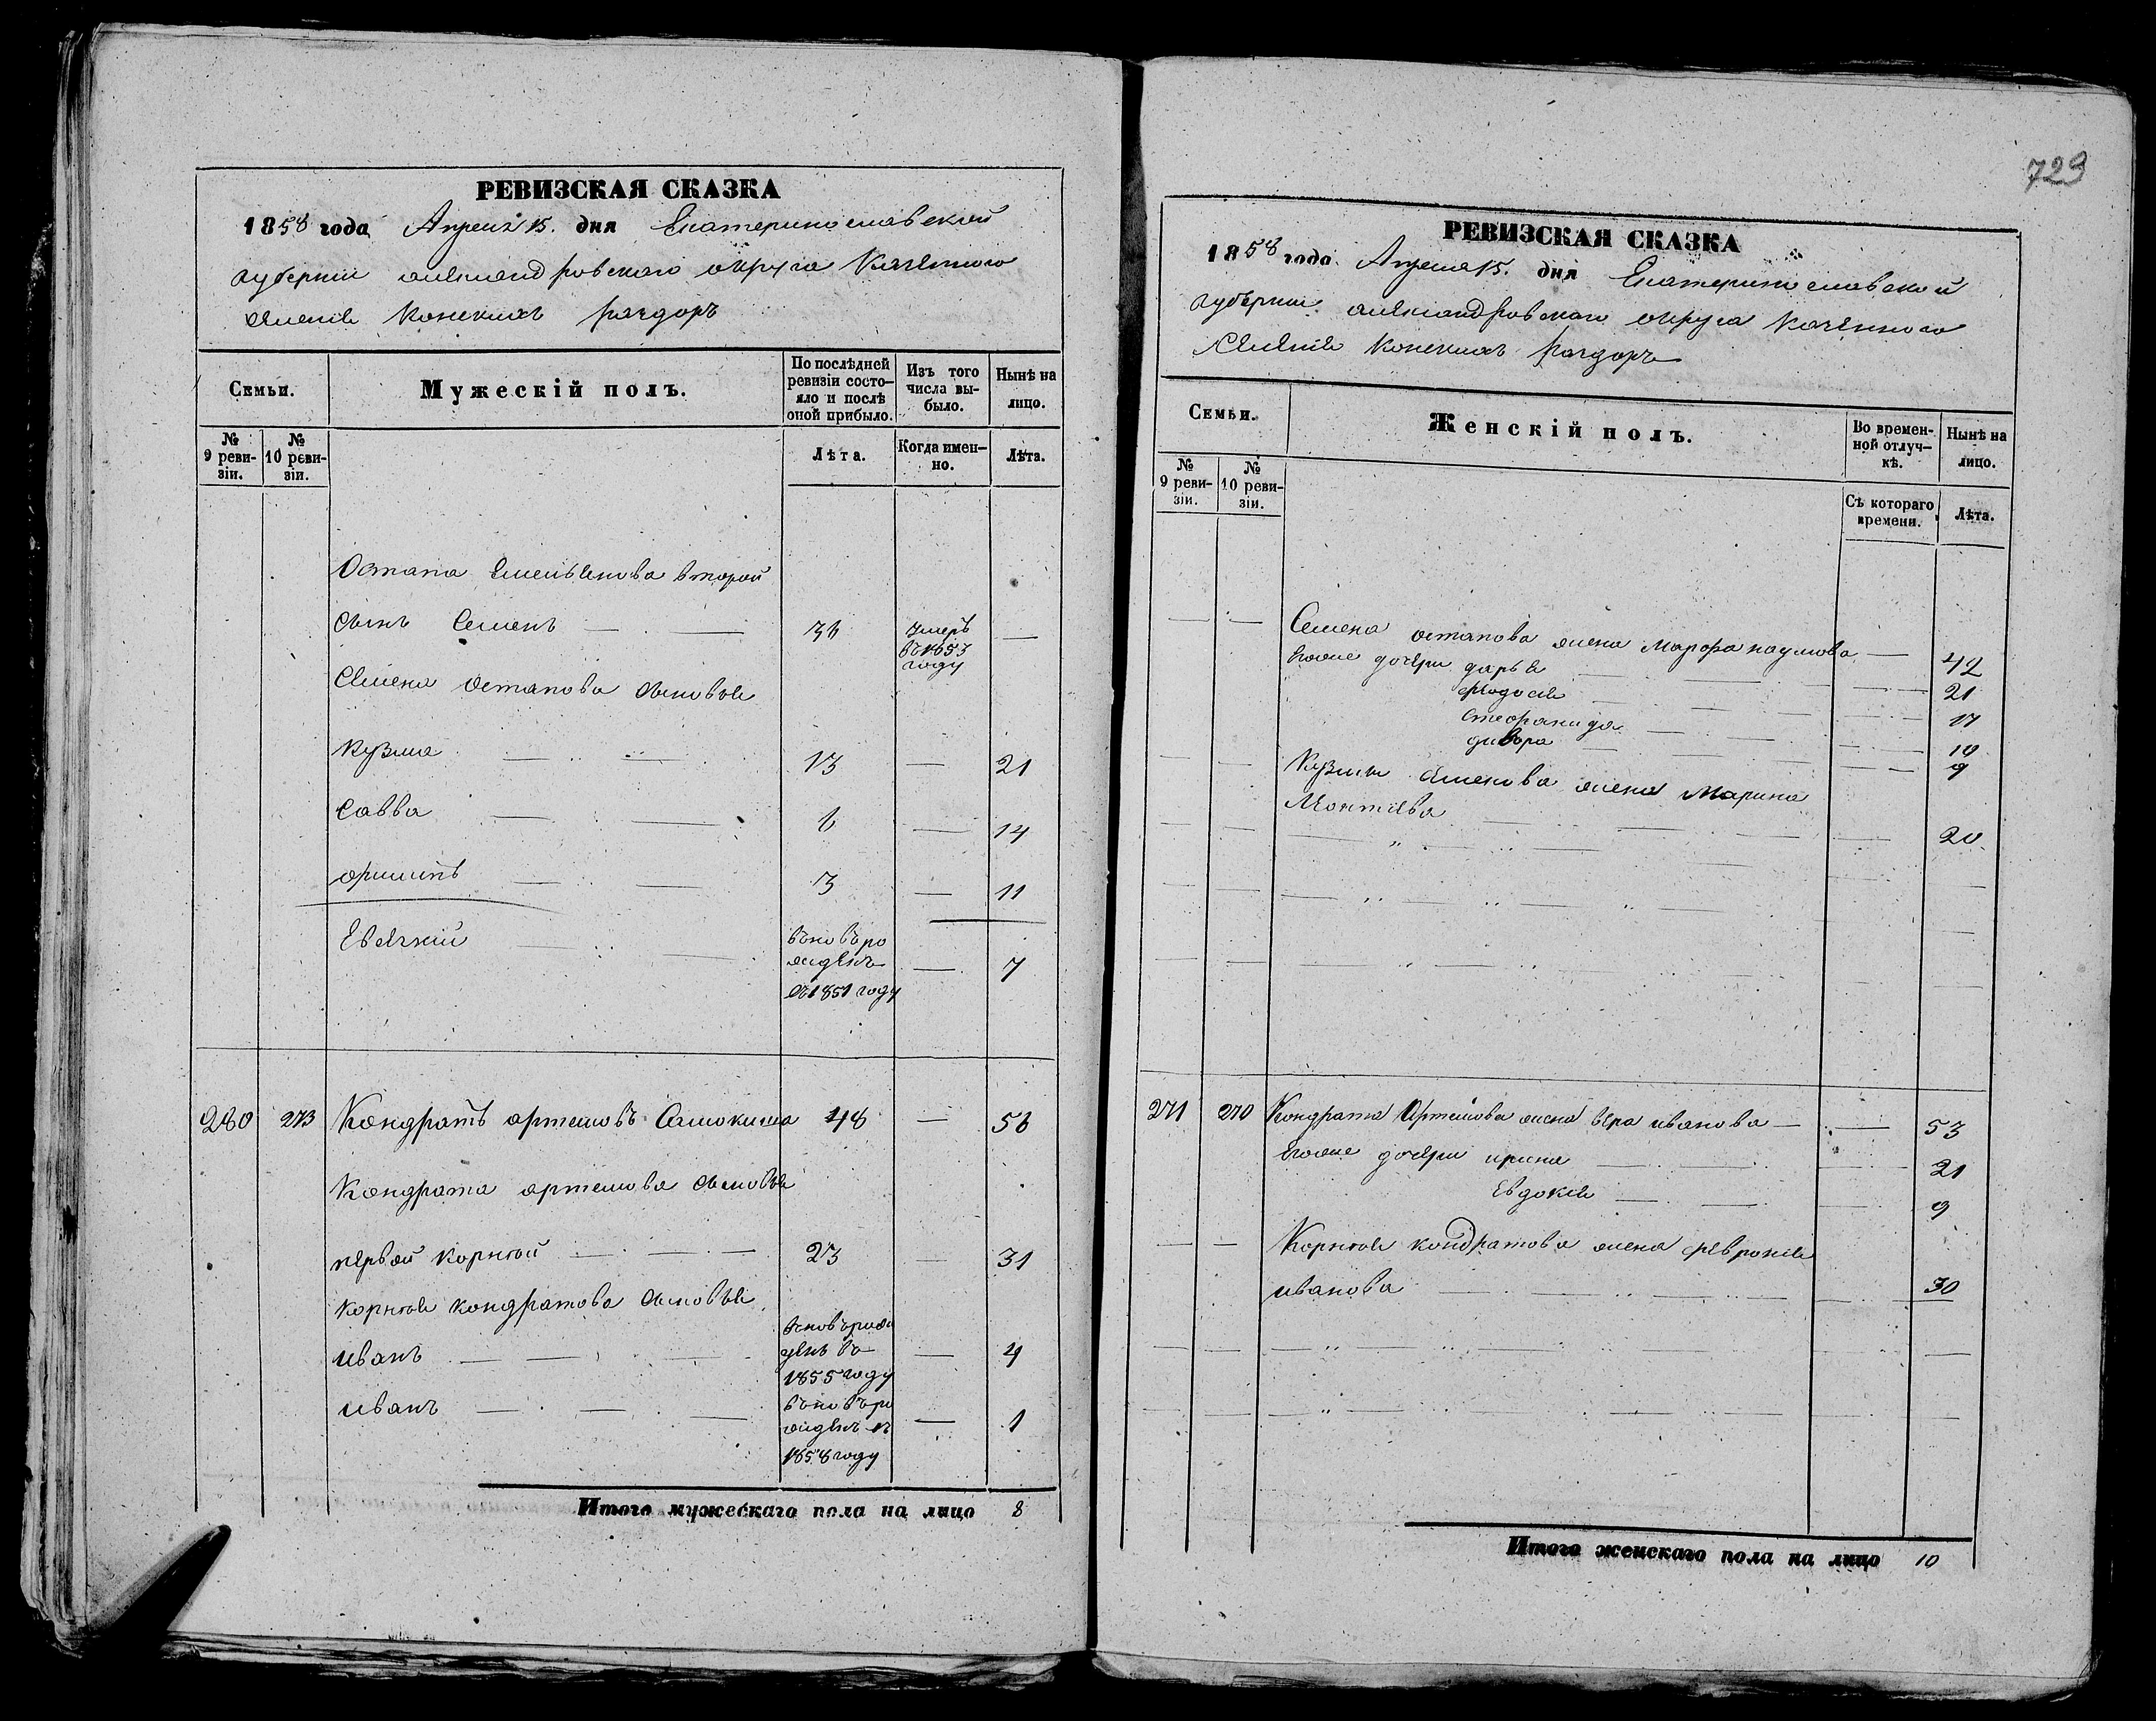 РЕВИЗСКАЯ СКАЗКА
1858 года Апреля 15. дня Екатеринославской
губернии александровскаго округа Казенного
селенія Конскихъ раздоръ
Семьи.
Мужескій полъ.
По послѣдней ревизіи состо-
яло и послѣ оной прибыло.
Изъ того числа вы-
было.
Нынѣ на лицо.
№ 9 реви-
зіи.
№ 10 реви-
зіи.
Лѣта.
Когда имен-
но.
Лѣта.
Остапа Емельянова второй
сынъ Семенъ — 36 умеръ —
въ 1853
году
Семена Остапова сыновья
Кузма — 13 — 21
Савва — 6 — 14
филипъ — 3 — 11
Евсѣгкій — вновь ро
жденъ — 7
въ 1851 году
280 273 Кондратъ артемовъ Самокиша 48 — 56
Кондрата артемова сыновья
первый корней — 23 — 31
корнея кондратова сыновья
вновь рож
иванъ — денъ въ — 4
1855 году
иванъ — вновь ро
жденъ въ — 1
1858 году
Итого мужескаго пола на лицо 8
729
РЕВИЗСКАЯ СКАЗКА
1858 года Апреля 15. дня Екатеринославской
губернии александровскаго округа казенного
селенія Конскихъ раздоръ
Семьи.
Женскій полъ.
Во времен-
ной отлуч-
кѣ.
Нынѣ на лицо.
№ 9 реви-
зіи.
№ 10 реви-
зіи.
Съ котораго времени.
Лѣта.
— — Семена остапова жена марфа наумова — 42
Егоже дочери дарья — 21
феодосія — 17
стефанида — 10
— 9
— — Кузмы семенова жена Марина
— 20
271 270 Кондрата Артемова жена вера иванова — 53
Егоже дочери ирина — 21
Евдокія — 9
— — Корнея кондратова жена февронія
иванова — 30
Итого женскаго пола на лицо 10